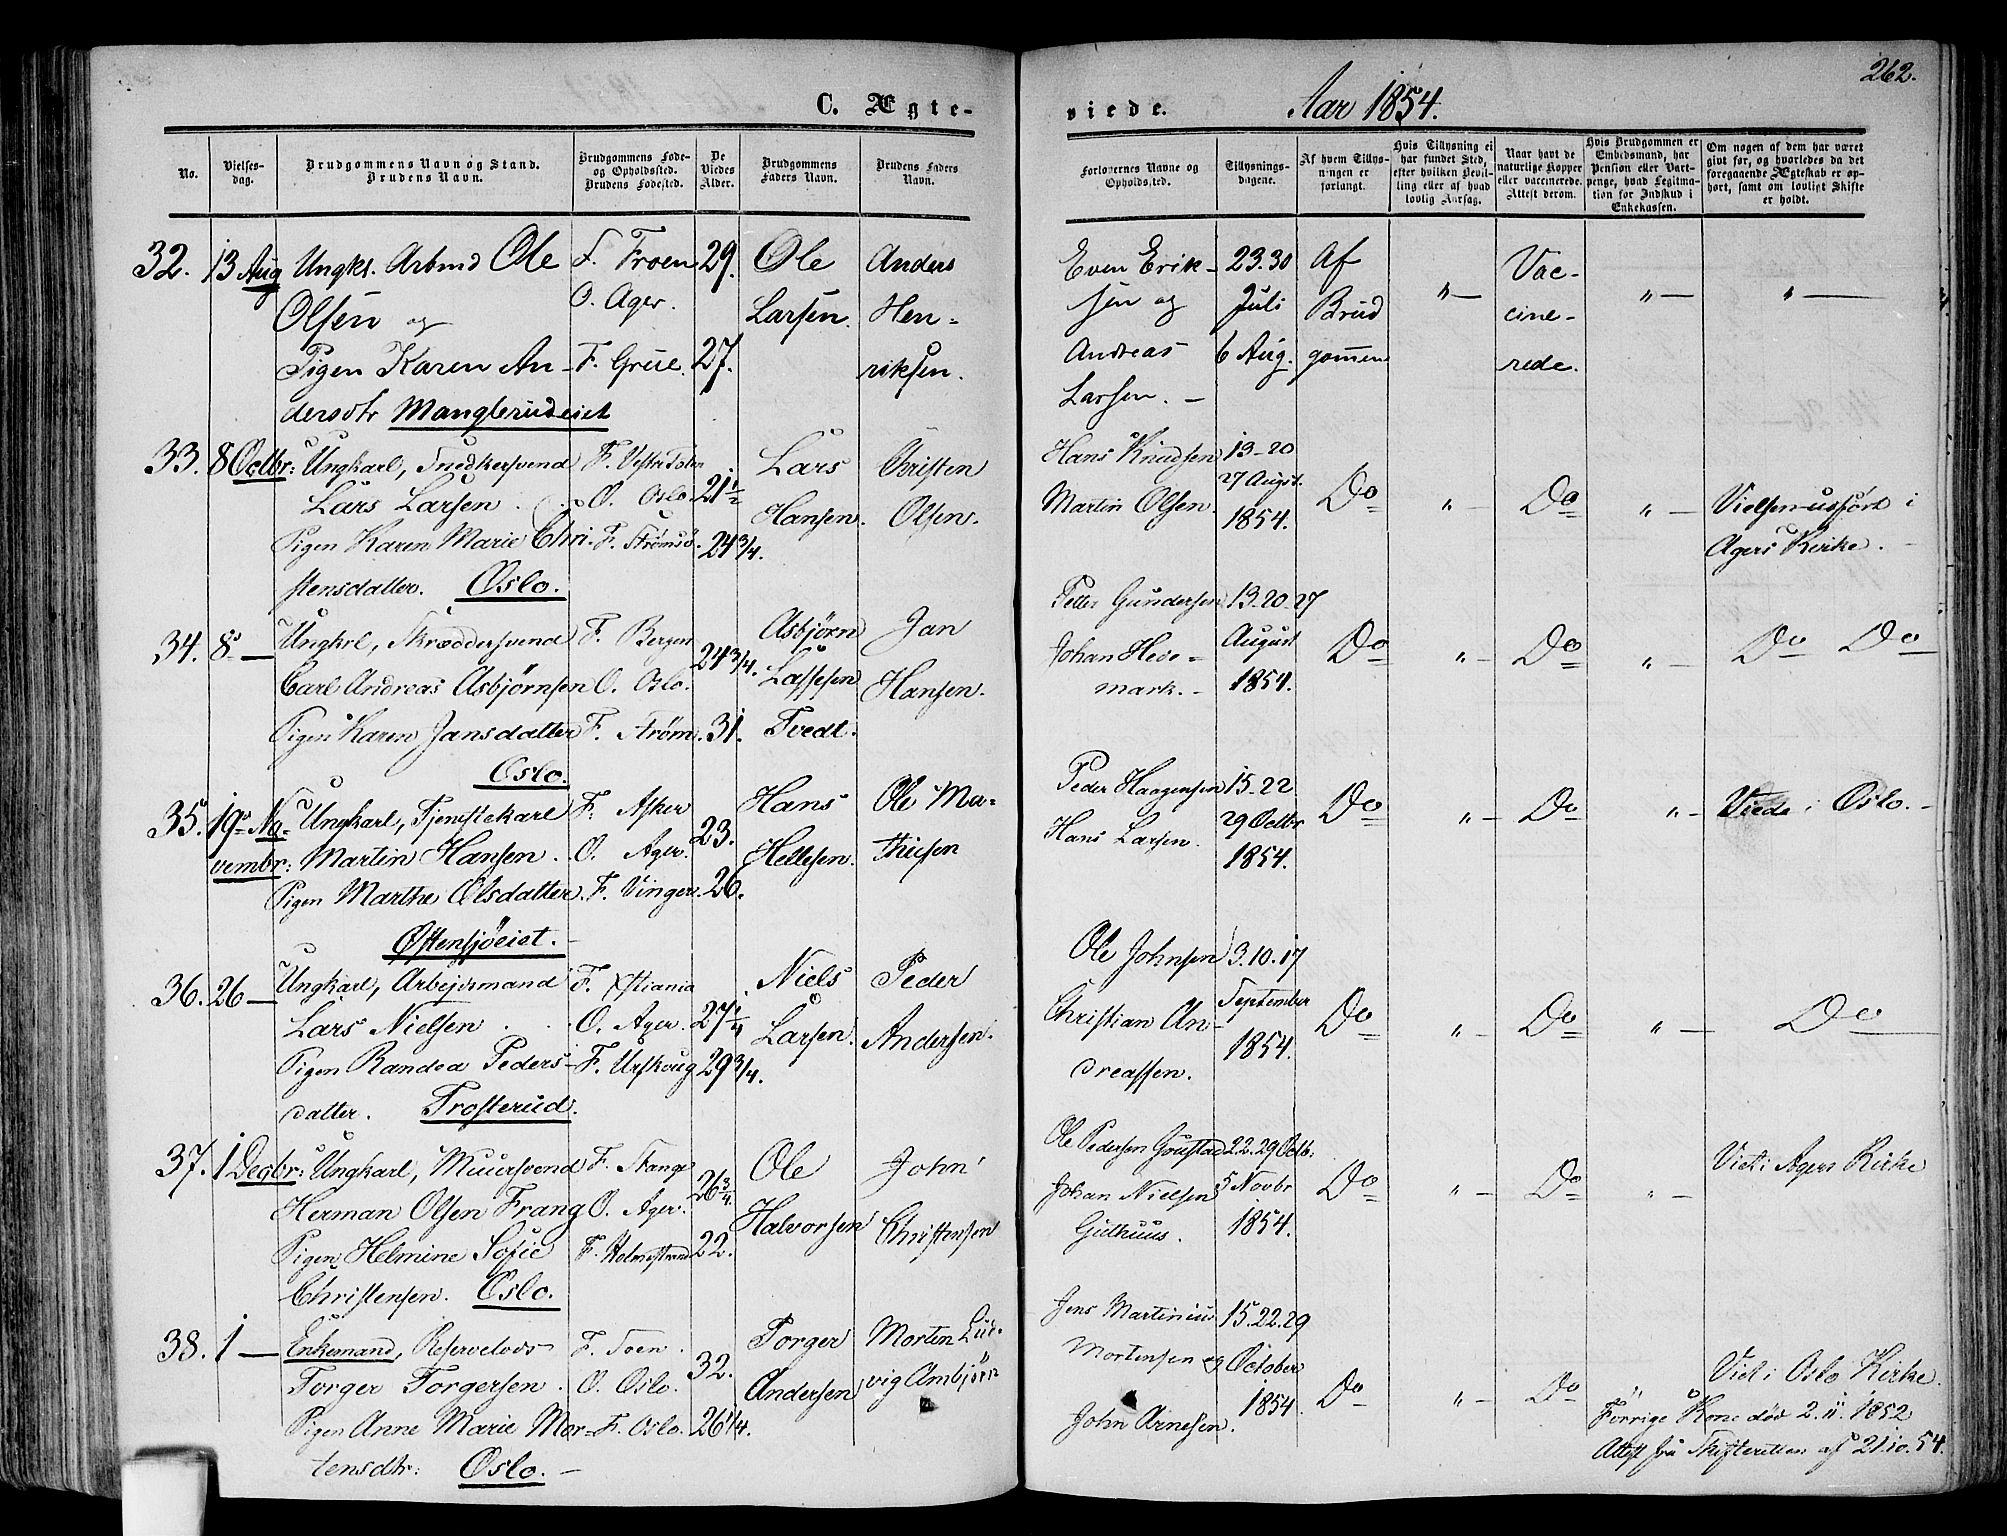 262.
C. Ægte-
viede. Aar 1854.
No.
Vielses-
dag.
Brudgommens Navn og Stand.
Brudens Navn.
Brudgommens Føde-
og Opholdssted.
Brudens Fødested.
De
Viedes
Alder.
Brudgommens
Faders Navn.
Brudens Faders
Navn.
Forlovernes Navne og
Opholdssted.
Tillysnings-
dagene.
Af hvem Tillys-
ningen er
forlangt.
Hvis Tillysning ei
har fundet Sted,
efter hvilken Bevil-
ling eller af hvad
lovlig Aarsag.
Naar havt de
naturlige Kopper
eller vaccinerede.
Attest derom.
Hvis Brudgommen er
Embedsmand, har
Pension eller Vart-
penge, hvad Legitima-
tion for Indskud i
Enkekassen.
Om nogen af dem har været
givt før, og hvorledes da det
foregaaende Ægteskab er op-
hørt, samt om lovligt Skifte
er holdt.
32. 13 Aug
Ungk. Arbmd Ole
Olsen og
Pigen Karen An-
dersdtr Manglerudeiet
F. Froen
O. Ager.
F. Grue.
29.
27.
Ole
Larsen.
Anders
Hen-
riksen.
Even Erik-
sen og
Andreas
Larsen. —
23.30
Juli
6 Aug.
Af
Brud
gommen
" —
Vac-
cine-
rede.
" —
" —
33. 8 Octbr:
Ungkarl, Snedkersvend
Lars Larsen
Pigen Karen Marie Chri-
stensdatter. Oslo.
F. Vestre Toten
O. Oslo.
F. Strømsø.
21½
24 3/4.
Lars
Hansen.
Christen
Olsen.
Hans Knudsen
Martin Olsen.
13-20
27 Augst.
1854.
Do
" —
Do
" —
Vielsen udført i
Agers Kirke. —
34. 8 —
Ungkrl, Skræddersvend
Carl Andreas Asbjørnsen
Pigen Karen Jansdatter
Oslo.
F. Bergen
O. Oslo.
F. Strøm.
24 3/4.
31.
Asbjørn
Lassesen
Tvedt.
Jan
Hansen.
Petter Gundersen
Johan Hede-
mark. —
13.20.27
August
1854.
Do
" —
Do
" —
Do Do
35. 19 No-
vembr:
Ungkarl, Tjenstekarl
Martin Hansen.
Pigen Marthe Olsdatter.
Østensjøeiet. —
F. Asker
O. Ager.
F. Vinger.
23.
26.
Hans
Hellesen.
Ole Ma-
thisen
Peder Haagensen
Hans Larsen.
15-22
29 Octbr
1854.
Do
" —
Do
" —
Viede i Oslo. —
36. 26 —
Ungkarl, Arbejdsmand
Lars Nielsen
Pigen Randea Peders-
datter. Trosterud.
F. Xstiania
O. Ager.
F. Urskoug
27 1/4
29 3/4.
Niels
Larsen.
Peder
Andersen.
Ole Johnsen
Christian An-
dreassen.
3.10.17
September
1854.
Do
" —
Do
" —
Do
37. 1 Decbr:
Ungkarl, Muursvend
Herman Olsen Frang
Pigen Helmine Sofie
Christensen. Oslo.
F. Stange
O. Ager.
F. Holmestrand
26 3/4.
22.
Ole
Halvorsen
John
Christensen
Ole Pedersen
Johan Nielsen
Gulhuus.
22.29 Octb.
5 Novbr
1854.
Do
" —
Do
" —
Viet i Agers Kirke
38. 1 —
Enkemand, Reservelods
Torger Torgersen.
Pigen Anne Marie Mor-
tensdtr: Oslo. —
F. Soen.
O. Oslo.
F. Oslo.
32.
26 1/4.
Torger
Andersen
Morten Lud-
vig Ambjørn
Jens Martinius
Mortensen og
John Arnesen.
15.22.29
October
1854.
Do
" —
Do
Viet i Oslo Kirke.
Forrige Kone død 2.11.1852
Attest fra Skifteretten af 21.10.54.